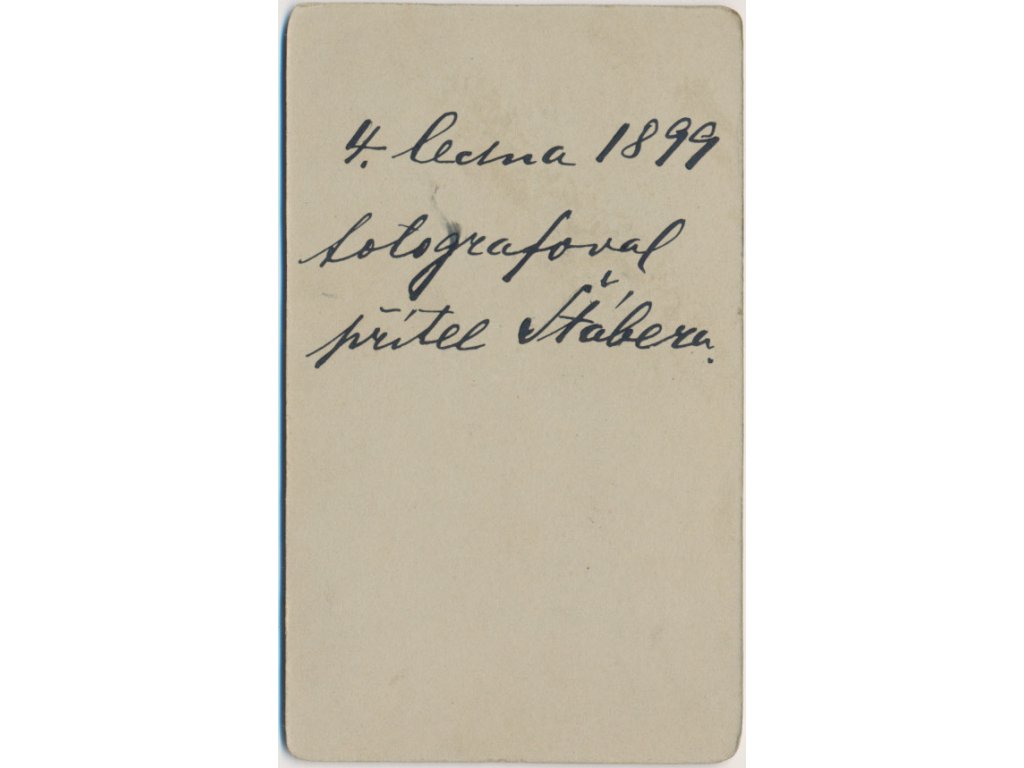 4. ledna 1899
fotografoval
přítel Štábera.